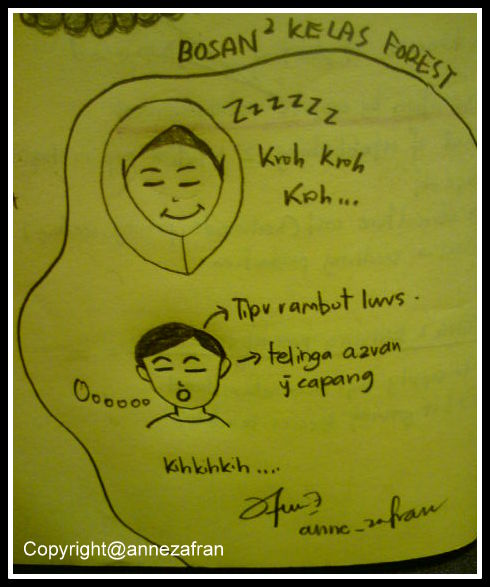 BOSAN² KELAS FOREST
Zzzzzz
Kroh Kroh
Kroh...
Tipu rambut lurus.
telinga azvan
yg capang
Oooooo
kihkihkih....
anne_zafran
Copyright@annezafran